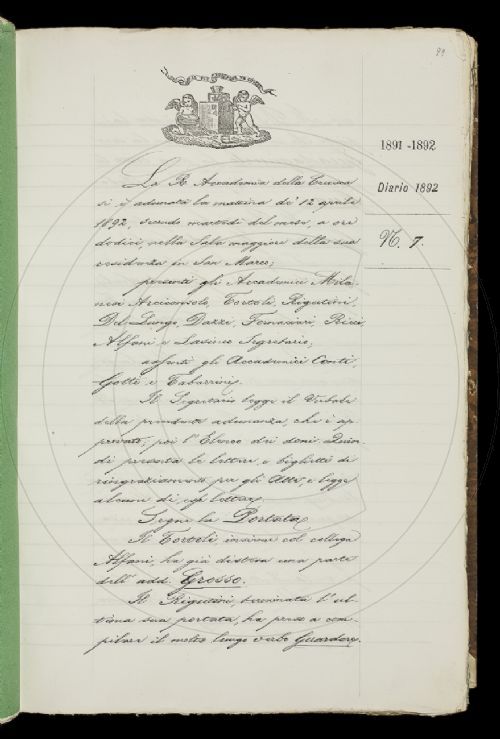 99
1891-1892
Diario 1892
N. 7.
La R. Accademia della Crusca
si è adunata la mattina de' 12 aprile
1892, secondo martedì del mese, a ore
dodici, nella Sala maggiore della sua
residenza in San Marco;
presenti gli Accademici Mila-
nesi Arciconsolo, Tortoli, Rigutini,
Del Lungo, Dazzi, Fornaciari, Ricci,
Alfani e Lasinio Segretario;
assenti gli Accademici Conti,
Gotti e Tabarrini.
Il Segretario legge il Verbale
della precedente adunanza, che è ap-
provato; poi l'Elenco dei doni. Quin-
di presenta le lettere e biglietti di
ringraziamenti per gli Atti, e legge
alcune di esse lettere.
Segue la Portata.
Il Tortoli, insieme col collega
Alfani, ha già disteso una parte
dell' add. Grosso.
Il Rigutini, terminata l' ul-
tima sua portata, ha preso a com-
pilare il molto lungo verbo Guardare,